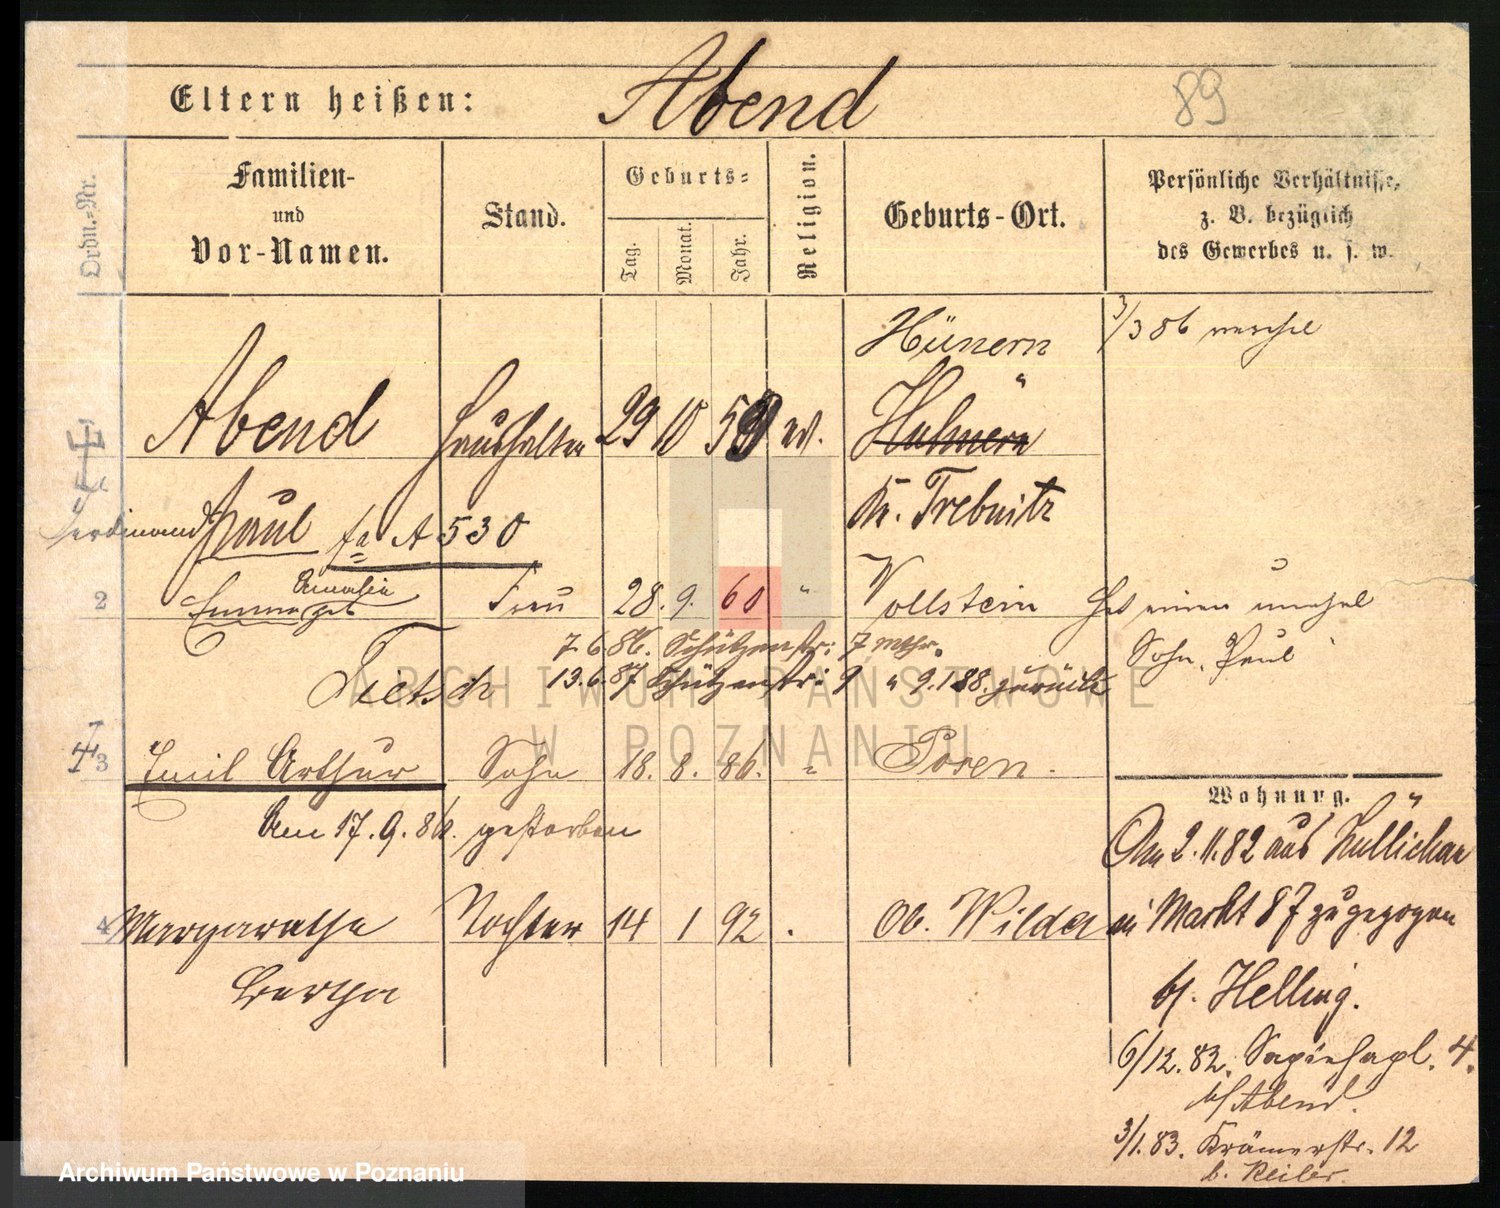 Eltern heißen: Abend 89
Ordn.-Nr.
Familien-
und
Vor-Namen.
Stand.
Geburts-
Tag.
Monat.
Jahr.
Religion.
Geburts-Ort.
Persönliche Verhältnisse,
z. B. bezüglich
des Gewerbes u. s. w.
Hünern
3/3 86
Abend Haushalter 29 10 59 ev. Hulmern
Kr. Trebnitz
Ferdinand Paul fa A 530
Amalie
2 Emma geb Frau 28. 9. 60 " Wollstein Hat einen unehel
7 6 86. Schützenstr: 7
Sohn, Paul
Tietsch 13.6.87 Schützenstr: 9 " 9.1 88. zurück
3 Emil Arthur Sohn 18. 8. 86. " Posen.
Am 17. 9. 86. gestorben
4 Margarethe Tochter 14 1 92 . Ob. Wilda
Bertha
Wohnung.
Am 2. 11. 82 aus Züllichau
Markt 87 zugezogen
b/. Helling.
6/12. 82. Sapiehapl. 4.
b/ Abend.
3/1. 83. Krämerstr. 12
b. Reiler.
ARCHIWUM PAŃSTWOWE
W POZNANIU
Archiwum Państwowe w Poznaniu